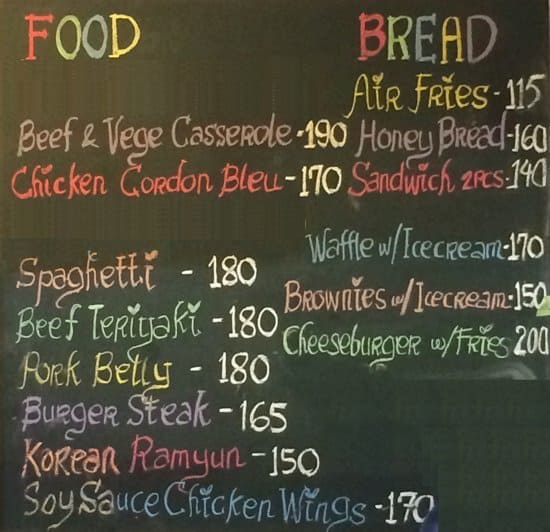 FOOD
Beef & Vege Casserole - 190
Chicken Cordon Bleu - 170
Spaghetti - 180
Beef Teriyaki - 180
Pork Belly - 180
Burger Steak - 165
Korean Ramyun - 150
Soy Sauce Chicken Wings - 170
BREAD
Air Fries - 115
Honey Bread - 160
Sandwich 2pcs - 140
Waffle w/ Icecream - 170
Brownies w/ Icecream - 150
Cheeseburger w/ Fries 200